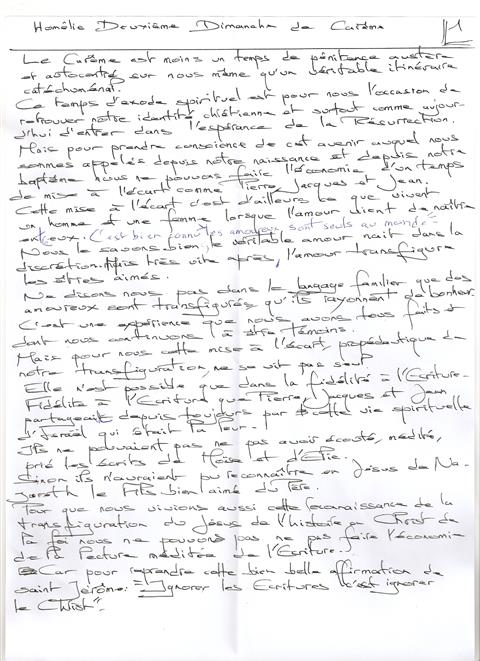 Homélie Deuxième Dimanche de Carême 1
Le Carême est moins un temps de pénitence austère
et autocentré sur nous même qu'un véritable itinéraire
catéchuménal.
Ce temps d'exode spirituel est pour nous l'occasion de
retrouver notre identité chrétienne et surtout comme aujour-
d'hui d'entrer dans l'espérance de la Résurrection.
Mais pour prendre conscience de cet avenir auquel nous
sommes appelés depuis notre naissance et depuis notre
baptême nous ne pouvons faire l'économie d'un temps
de mise à l'écart comme Pierre, Jacques et Jean.
Cette mise à l'écart c'est d'ailleurs ce que vivent
un homme et une femme lorsque l'amour vient de naître
entre eux. C'est bien connu "les amoureux sont seuls au monde"
Nous le savons bien, le véritable amour nait dans la
discrétion. Mais très vite après, l'amour transfigure
les êtres aimés.
Ne disons nous pas dans le langage familier que des
amoureux sont transfigurés, qu'ils rayonnent de bonheur.
C'est une expérience que nous avons tous faits et
dont nous continuons à être témoins.
Mais pour nous cette mise à l'écart, propédeutique de
notre transfiguration, ne se vit pas seul.
Elle n'est possible que dans la fidélité à l'Ecriture.
Fidélité à l'Ecriture que Pierre, Jacques et Jean
partageait depuis toujours par cette vie spirituelle
d'Israël qui était la leur.
Ils ne pouvaient pas ne pas avoir écouté, médité,
prié les écrits de Moïse et d'Elie.
Sinon ils n'auraient pu reconnaître en Jésus de Na-
zareth le Fils bien aimé du Père.
Pour que nous vivions aussi cette reconnaissance de la
transfiguration du Jésus de l'histoire en Christ de
la foi nous ne pouvons pas ne pas faire l'économie
de la lecture méditée de l'Ecriture.
Car pour reprendre cette bien belle affirmation de
saint Jérôme: "Ignorer les Ecritures c'est ignorer
le Christ".